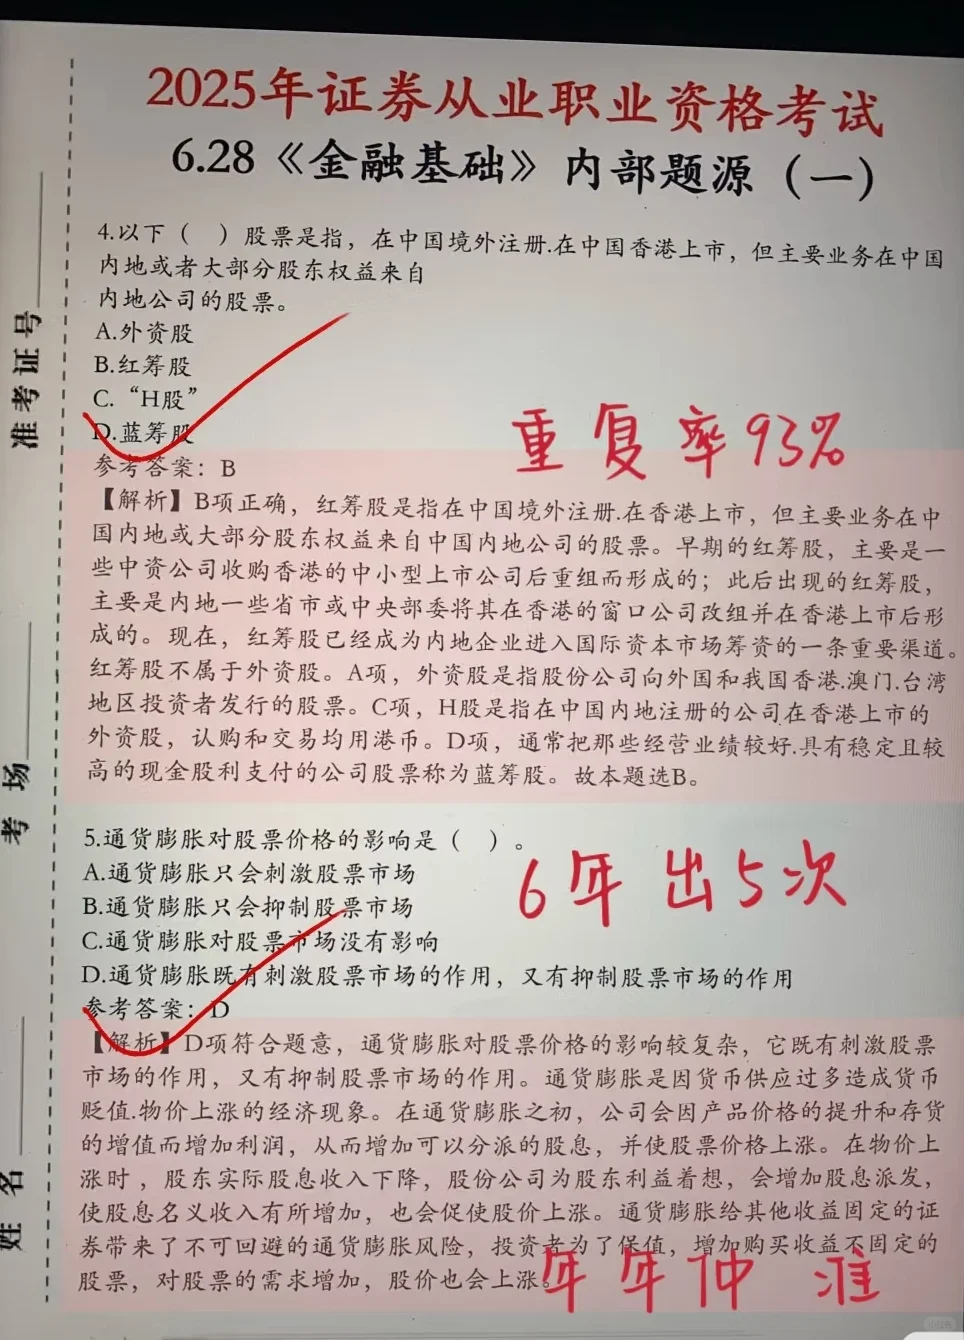 2025年证券从业职业资格考试
6.28《金融基础》内部题源（一）
4.以下（ ）股票是指，在中国境外注册.在中国香港上市，但主要业务在中国
内地或者大部分股东权益来自
内地公司的股票。
A.外资股
B.红筹股
C.“H股”
D.蓝筹股
重复率93%
参考答案：B
【解析】B项正确，红筹股是指在中国境外注册.在香港上市，但主要业务在中
国内地或大部分股东权益来自中国内地公司的股票。早期的红筹股，主要是一
些中资公司收购香港的中小型上市公司后重组而形成的；此后出现的红筹股，
主要是内地一些省市或中央部委将其在香港的窗口公司改组并在香港上市后形
成的。现在，红筹股已经成为内地企业进入国际资本市场筹资的一条重要渠道。
红筹股不属于外资股。A项，外资股是指股份公司向外国和我国香港.澳门.台湾
地区投资者发行的股票。C项，H股是指在中国内地注册的公司在香港上市的
外资股，认购和交易均用港币。D项，通常把那些经营业绩较好.具有稳定且较
高的现金股利支付的公司股票称为蓝筹股。故本题选B。
5.通货膨胀对股票价格的影响是（ ）。
A.通货膨胀只会刺激股票市场
B.通货膨胀只会抑制股票市场
C.通货膨胀对股票市场没有影响
D.通货膨胀既有刺激股票市场的作用，又有抑制股票市场的作用
6年出5次
参考答案：D
【解析】D项符合题意，通货膨胀对股票价格的影响较复杂，它既有刺激股票
市场的作用，又有抑制股票市场的作用。通货膨胀是因货币供应过多造成货币
贬值.物价上涨的经济现象。在通货膨胀之初，公司会因产品价格的提升和存货
的增值而增加利润，从而增加可以分派的股息，并使股票价格上涨。在物价上
涨时，股东实际股息收入下降，股份公司为股东利益着想，会增加股息派发，
使股息名义收入有所增加，也会促使股价上涨。通货膨胀给其他收益固定的证
券带来了不可回避的通货膨胀风险，投资者为了保值，增加购买收益不固定的
股票，对股票的需求增加，股价也会上涨。
年年仲准
准考证号
考场
姓名
小红书